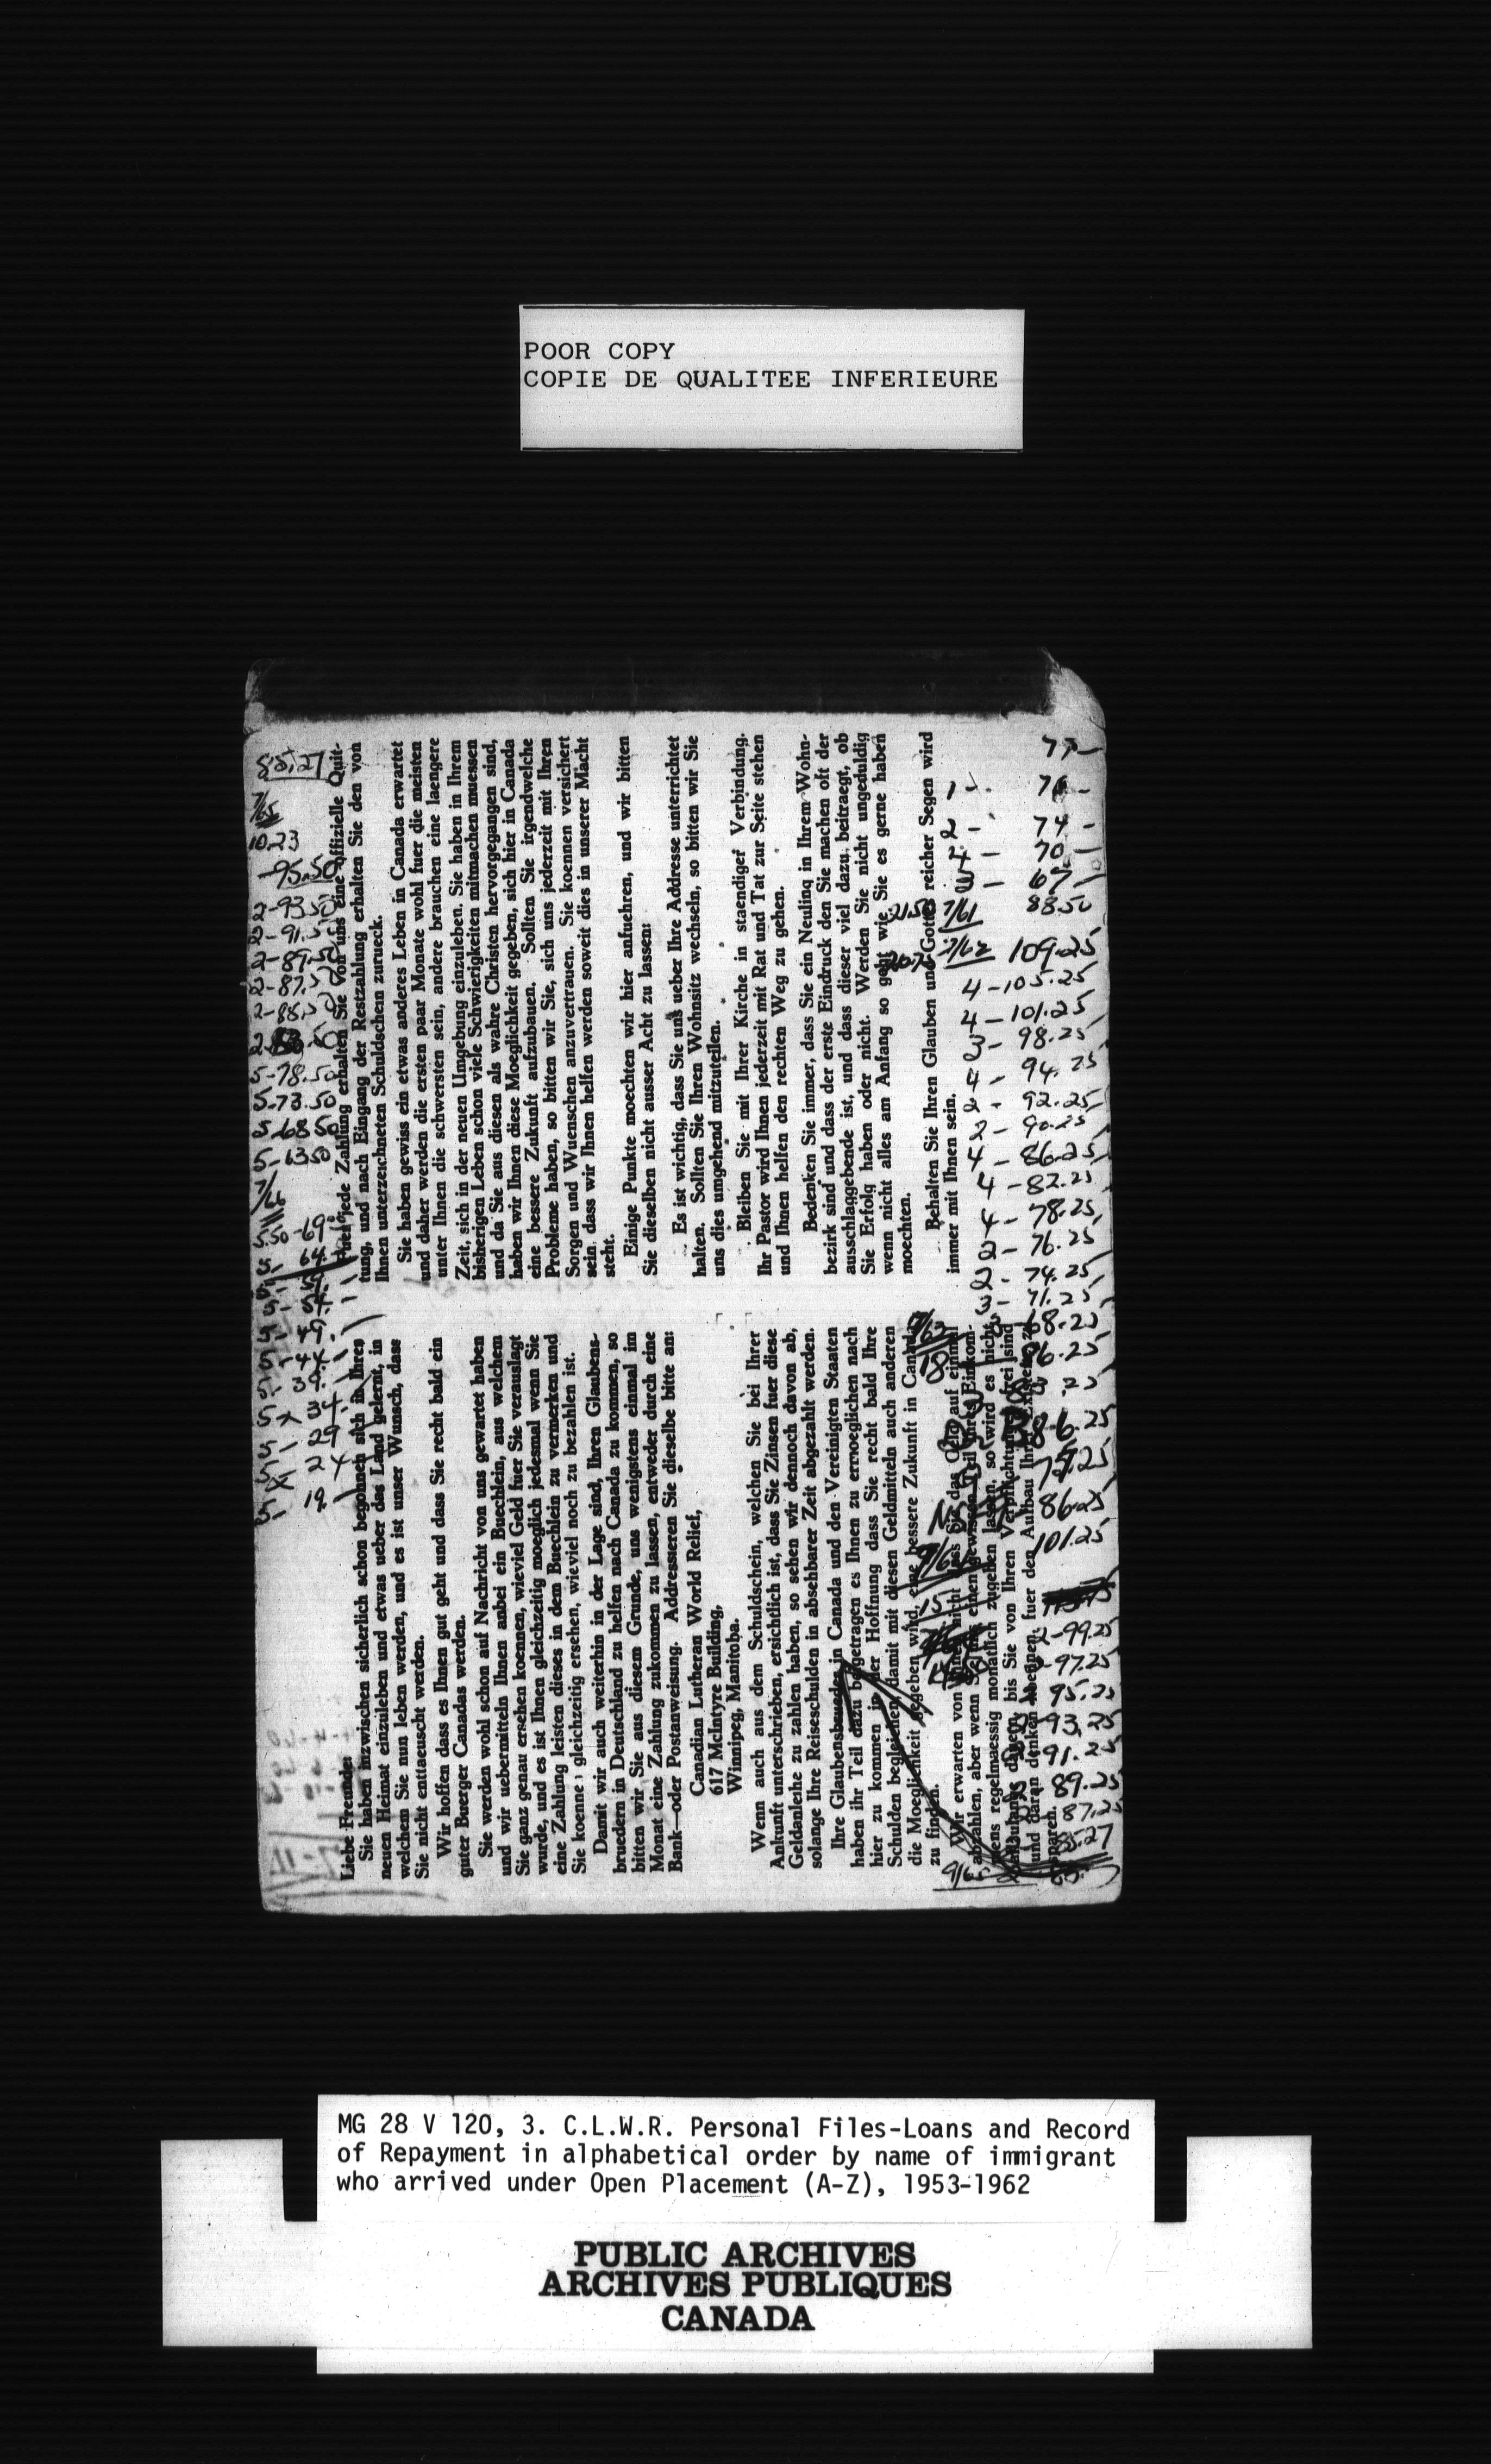 POOR COPY
COPIE DE QUALITEE INFERIEURE
Liebe Freunde:
Sie haben inzwischen sicherlich schon begonnen sich in Ihres
neuen Heimat einzuleben und etwas ueber das Land gelernt, in
welchem Sie nun leben werden, und es ist unser Wunsch, dass
Sie nicht enttaeuscht werden.
Wir hoffen dass es Ihnen gut geht und dass Sie recht bald ein
guter Buerger Canadas werden.
Sie werden wohl schon auf Nachricht von uns gewartet haben
und wir uebermitteln Ihnen anbei ein Buechlein, aus welchem
Sie ganz genau ersehen koennen, wieviel Geld fuer Sie verauslagt
wurde, und es ist Ihnen gleichzeitig moeglich jedesmal wenn Sie
eine Zahlung leisten dieses in dem Buechlein zu vermerken und
Sie koennen gleichzeitig ersehen, wieviel noch zu bezahlen ist.
Damit wir auch weiterhin in der Lage sind, Ihren Glaubens-
bruedern in Deutschland zu helfen nach Canada zu kommen, so
bitten wir Sie aus diesem Grunde, uns wenigstens einmal im
Monat eine Zahlung zukommen zu lassen, entweder durch eine
Bank—oder Postanweisung. Addressieren Sie dieselbe bitte an:
Canadian Lutheran World Relief,
617 McIntyre Building,
Winnipeg, Manitoba.
Wenn auch aus dem Schuldschein, welchen Sie bei Ihrer
Ankunft unterschrieben, ersichtlich ist, dass Sie Zinsen fuer diese
Geldanleihe zu zahlen haben, so sehen wir dennoch davon ab,
solange Ihre Reiseschulden in absehbarer Zeit abgezahlt werden.
Ihre Glaubensbrueder in Canada und den Vereinigten Staaten
haben ihr Teil dazu beigetragen es Ihnen zu ermoeglichen nach
hier zu kommen in der Hoffnung dass Sie recht bald Ihre
Schulden begleichen, damit mit diesen Geldmitteln auch anderen
die Moeglichkeit gegeben wird, eine bessere Zukunft in Canada
zu finden.
Wir erwarten von Ihnen nicht dass Sie das Geld auf einmal
abzahlen, aber wenn Sie uns einen gewissen Teil Ihres Einkom-
mens regelmaessig monatlich zugehen lassen, so wird es nicht
lange dauern, bis Sie von Ihren Verpflichtungen frei sind
und daran denken koennen, fuer den Aufbau Ihrer Existenz zu
sparen.
Fuer jede Zahlung erhalten Sie von uns eine offizielle Quit-
tung, und nach Eingang der Restzahlung erhalten Sie den von
Ihnen unterzeichneten Schuldschein zurueck.
Sie haben gewiss ein etwas anderes Leben in Canada erwartet
und daher werden die ersten paar Monate wohl fuer die meisten
unter Ihnen die schwersten sein, andere brauchen eine laengere
Zeit, sich in der neuen Umgebung einzuleben. Sie haben in Ihrem
bisherigen Leben schon viele Schwierigkeiten mitmachen muessen
und da Sie aus diesen als wahre Christen hervorgegangen sind,
haben wir Ihnen diese Moeglichkeit gegeben, sich hier in Canada
eine bessere Zukunft aufzubauen. Sollten Sie irgendwelche
Probleme haben, so bitten wir Sie, sich uns jederzeit mit Ihren
Sorgen und Wuenschen anzuvertrauen. Sie koennen versichert
sein dass wir Ihnen helfen werden soweit dies in unserer Macht
steht.
Einige Punkte moechten wir hier anfuehren, und wir bitten
Sie dieselben nicht ausser Acht zu lassen:
Es ist wichtig, dass Sie uns ueber Ihre Addresse unterrichtet
halten. Sollten Sie Ihren Wohnsitz wechseln, so bitten wir Sie
uns dies umgehend mitzuteilen.
Bleiben Sie mit Ihrer Kirche in staendiger Verbindung.
Ihr Pastor wird Ihnen jederzeit mit Rat und Tat zur Seite stehen
und Ihnen helfen den rechten Weg zu gehen.
Bedenken Sie immer, dass Sie ein Neuling in Ihrem Wohn-
bezirk sind und dass der erste Eindruck den Sie machen oft der
ausschlaggebende ist, und dass dieser viel dazu beitraegt, ob
Sie Erfolg haben oder nicht. Werden Sie nicht ungeduldig
wenn nicht alles am Anfang so geht wie Sie es gerne haben
moechten.
Behalten Sie Ihren Glauben und Gottes reicher Segen wird
immer mit Ihnen sein.
85.27
7/65
10.23
-95.50
2-93.50
2-91.50
2-89.50
2-87.50
2-85.50
5-78.50
5-73.50
5-68.50
5-63.50
7/66
5.50-69
5-64.
5-59.
5-54.
5-49.
5-44.
5-39.
5-34.
5-29
5-24
5-19.
77-
1- 76-
2- 74-
4- 70-
3- 67-
21.50 7/61 88.50
20.75 7/62 109.25
4-105.25
4-101.25
3-98.25
4-94.25
2-92.25
2-90.25
4-86.25
4-82.25
4-78.25
2-76.25
2-74.25
3-71.25
3-68.25
7/63
18
86.25
86.25
101.25
15
2-99.25
2-97.25
95.25
2-93.25
91.25
89.25
87.25
85.27
9/65
MG 28 V 120, 3. C.L.W.R. Personal Files-Loans and Record
of Repayment in alphabetical order by name of immigrant
who arrived under Open Placement (A-Z), 1953-1962
PUBLIC ARCHIVES
ARCHIVES PUBLIQUES
CANADA